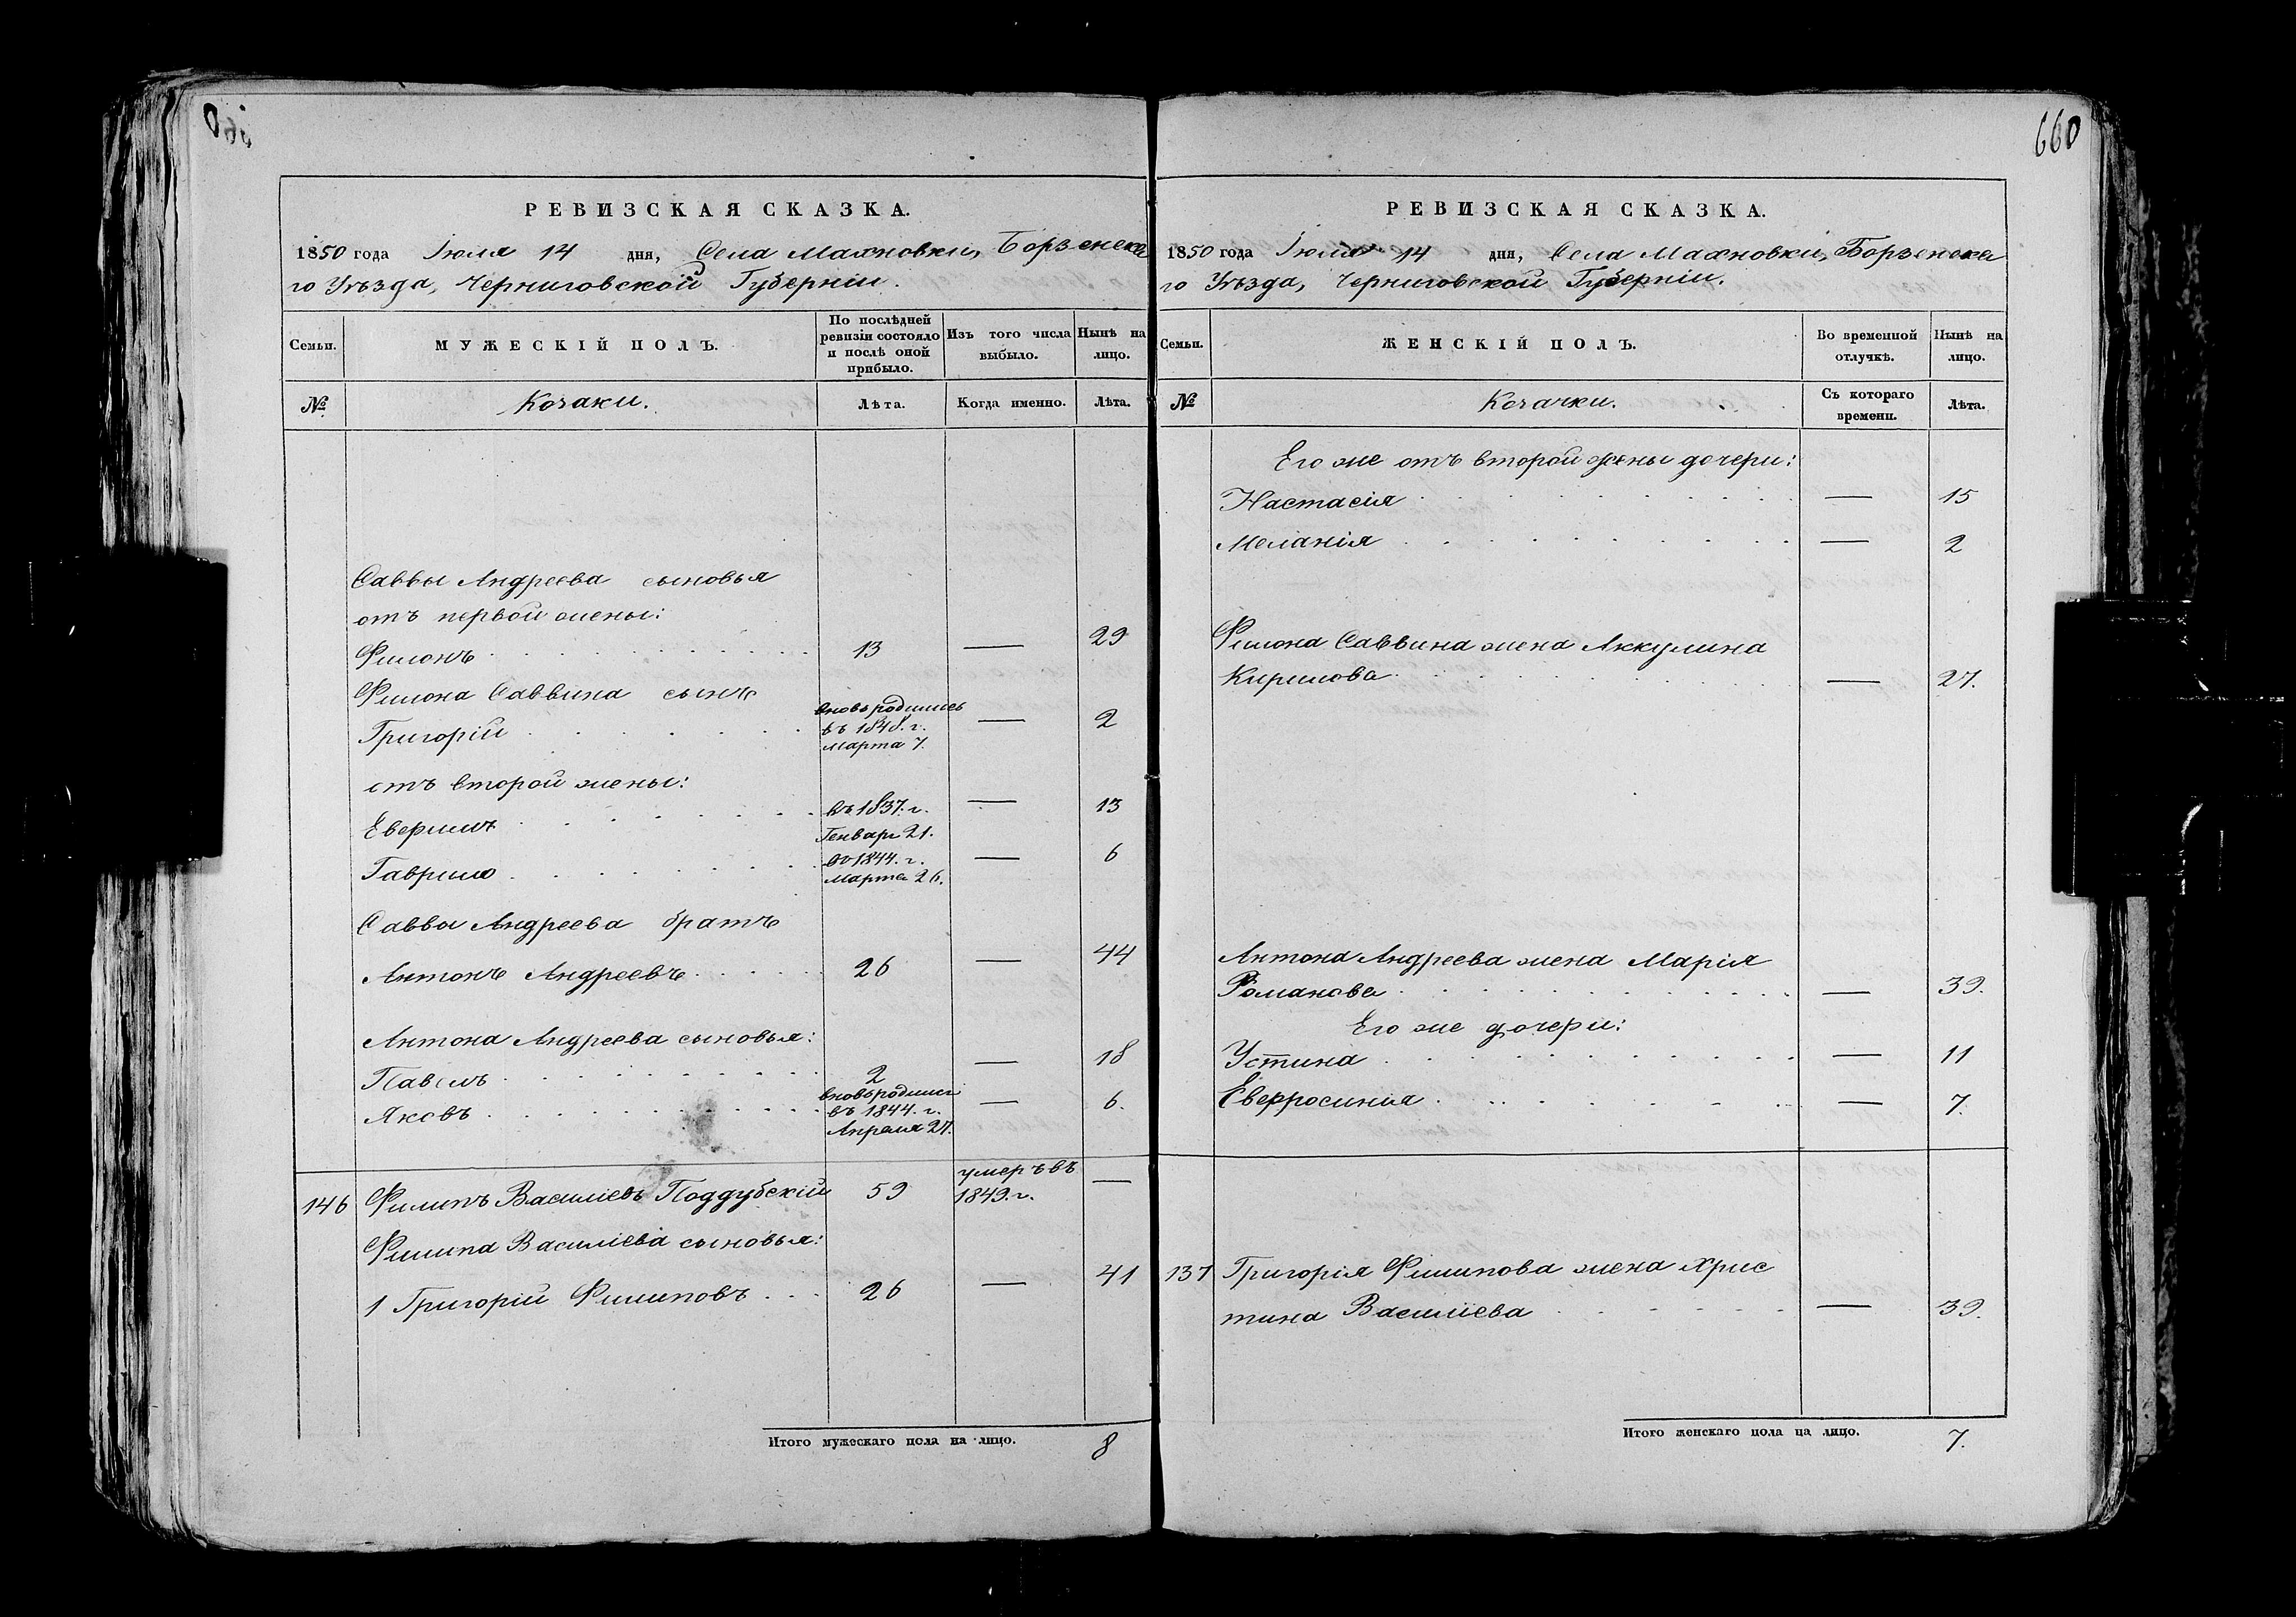 660
РЕВИЗСКАЯ СКАЗКА.
1850 года Іюля 14 дня, Села Махновки, Борзенска
го Уѣзда, Черниговской Губерніи.
Семьи.
МУЖЕСКІЙ ПОЛЪ.
По послѣдней
ревизіи состояло
и послѣ оной
прибыло.
Изъ того числа
выбыло.
Нынѣ на
лицо.
№
Козаки.
Лѣта.
Когда именно.
Лѣта.
Саввы Андреева сыновья
отъ первой жены:
Филонъ 13 — 29
Филона Саввина сынъ
Григорій вновь родились въ 1848. г. Марта 7. — 2
отъ второй жены:
въ 1837. г. — 13
Генваря 21.
Гаврило во 1844. г. Марта 26. — 6
Саввы Андреева братъ
Антонъ Андреевъ 26 — 44
Антона Андреева сыновья:
Павелъ 2 — 18
Яковъ вновь родился въ 1844. г. Апреля 27. — 6.
146 Филипъ Василіевъ Поддубскій 59 умеръ въ 1849. г. —
Филипа Василіева сыновья:
1 Григорій Филиповъ 26 — 41
Итого мужескаго пола на лицо. 8
РЕВИЗСКАЯ СКАЗКА.
1850 года Іюля 14 дня, Села Махновки, Борзенска
го Уѣзда, Черниговской Губерніи.
Семьи.
ЖЕНСКІЙ ПОЛЪ.
Во временной
отлучкѣ.
Нынѣ на
лицо.
№
Козачки.
Съ котораго
времени.
Лѣта.
Его же отъ второй жены дочери:
Настасія — 15
Меланія — 2
Филона Саввина жена Аккулина
Кирилова — 27.
Антона Андреева жена Марія
Романова — 39.
Его же дочери:
Устина — 11
Евфросинія — 7.
137 Григорія Филипова жена Хрис
тина Василіева — 39.
Итого женскаго пола на лицо. 7.